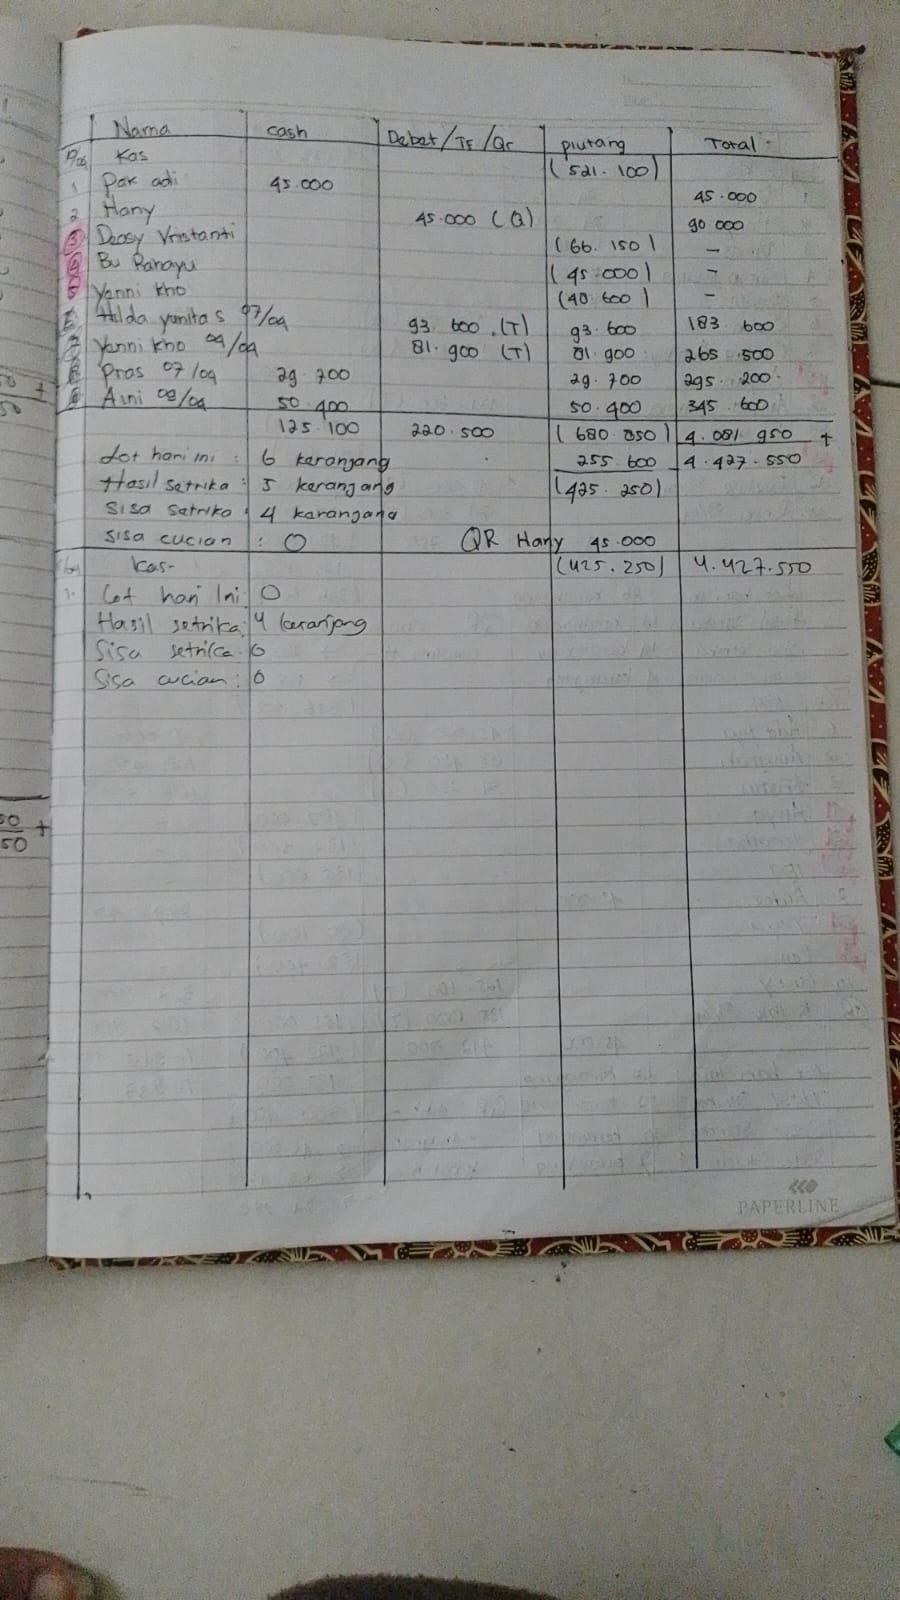 Nama cash Debet/TF/Qr piutang Total
Kas (521.100)
1 Pak adi 45.000 45.000
2 Hany 45.000 (Q) 90.000
3 Deasy Vristanti (66.150) -
4 Bu Rahayu (45.000) -
5 Yanni Kho (48.600) -
Hilda yunita S 07/09 93.600 (T) 93.600 183.600
Yanni kho 04/09 81.900 (T) 81.900 265.500
Pras 07/09 29.700 29.700 295.200
Aini 08/09 50.400 50.400 345.600
125.100 220.500 (680.850) 4.081.950 +
Lot hari ini : 6 keranjang 255.600 4.427.550
Hasil setrika : 5 keranjang (425.250)
Sisa setrika : 4 keranjang
Sisa cucian : 0 QR Hany 45.000
Kas- (425.250) 4.427.550
1. Lot hari Ini : 0
Hasil setrika : 4 keranjang
Sisa setrika : 0
Sisa cucian : 0
PAPERLINE